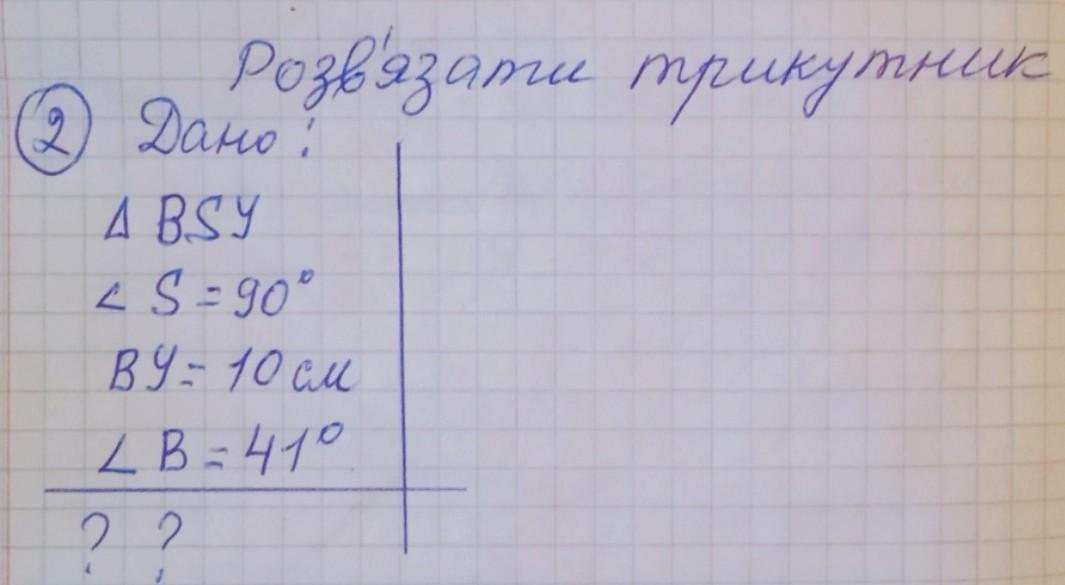 Розв'язати трикутник
2 Дано:
Δ BSY
∠ S = 90°
BY = 10 см
∠ B = 41°
? ?